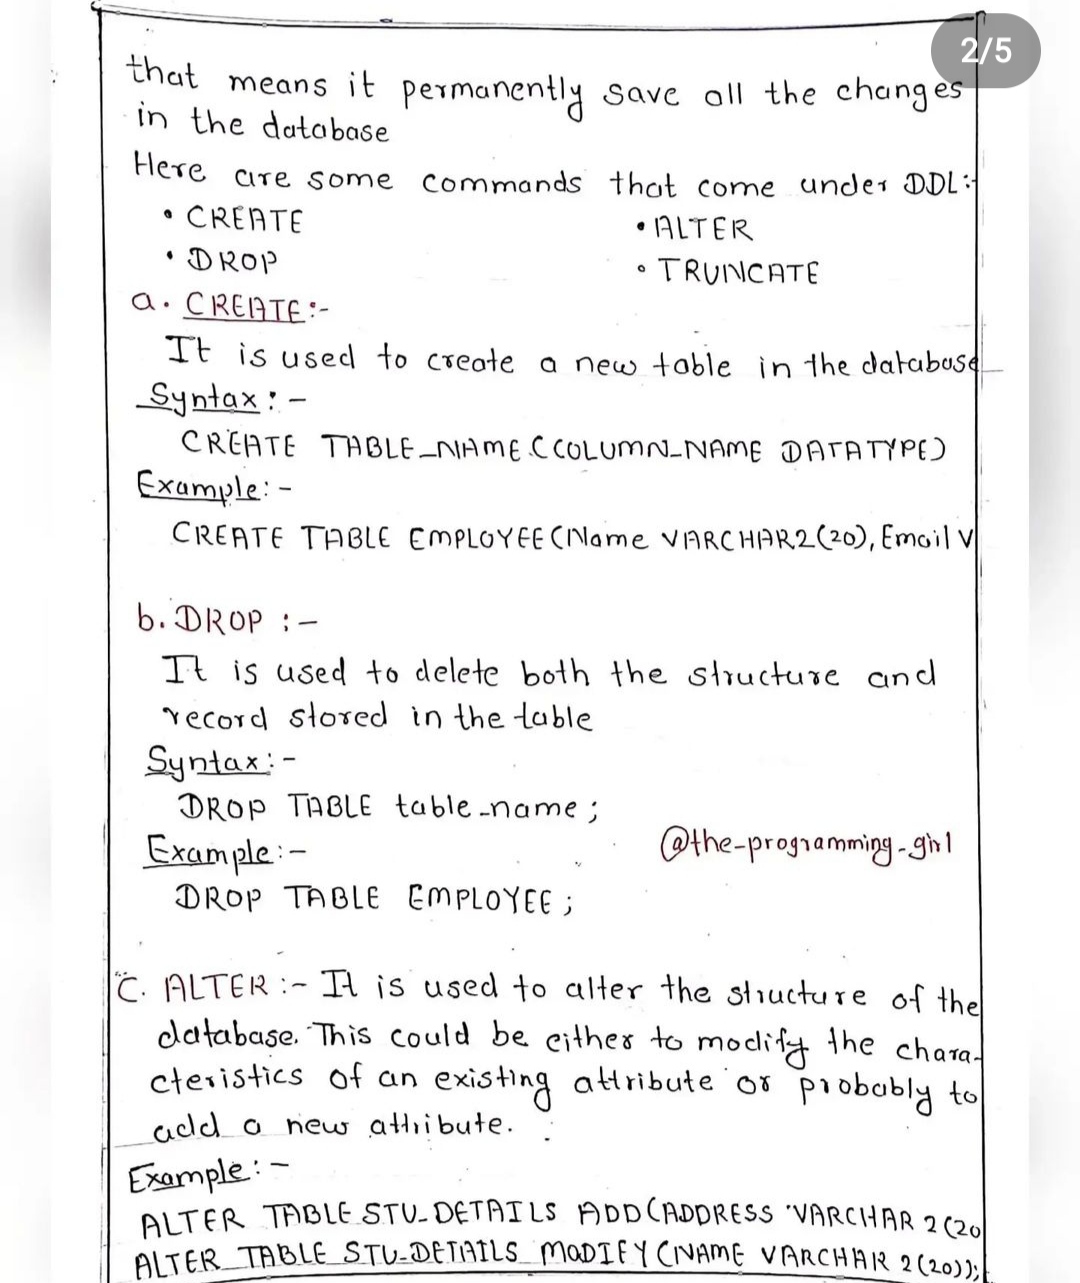 2/5
that means it permanently save all the changes
in the database
Here are some commands that come under DDL:-
• CREATE
• ALTER
• DROP
• TRUNCATE
a. CREATE:-
It is used to create a new table in the database
Syntax:-
CREATE TABLE_NAME (COLUMN_NAME DATATYPE)
Example:-
CREATE TABLE EMPLOYEE(Name VARCHAR2(20), Email V
b. DROP :-
It is used to delete both the structure and
record stored in the table
Syntax:-
DROP TABLE table_name;
@the-programming-girl
Example:-
DROP TABLE EMPLOYEE;
C. ALTER :- It is used to alter the structure of the
database. This could be either to modify the chara-
cteristics of an existing attribute or probably to
add a new attribute.
Example:-
ALTER TABLE STU_DETAILS ADD(ADDRESS VARCHAR2(20
ALTER TABLE STU-DETAILS MODIFY (NAME VARCHAR2(20));